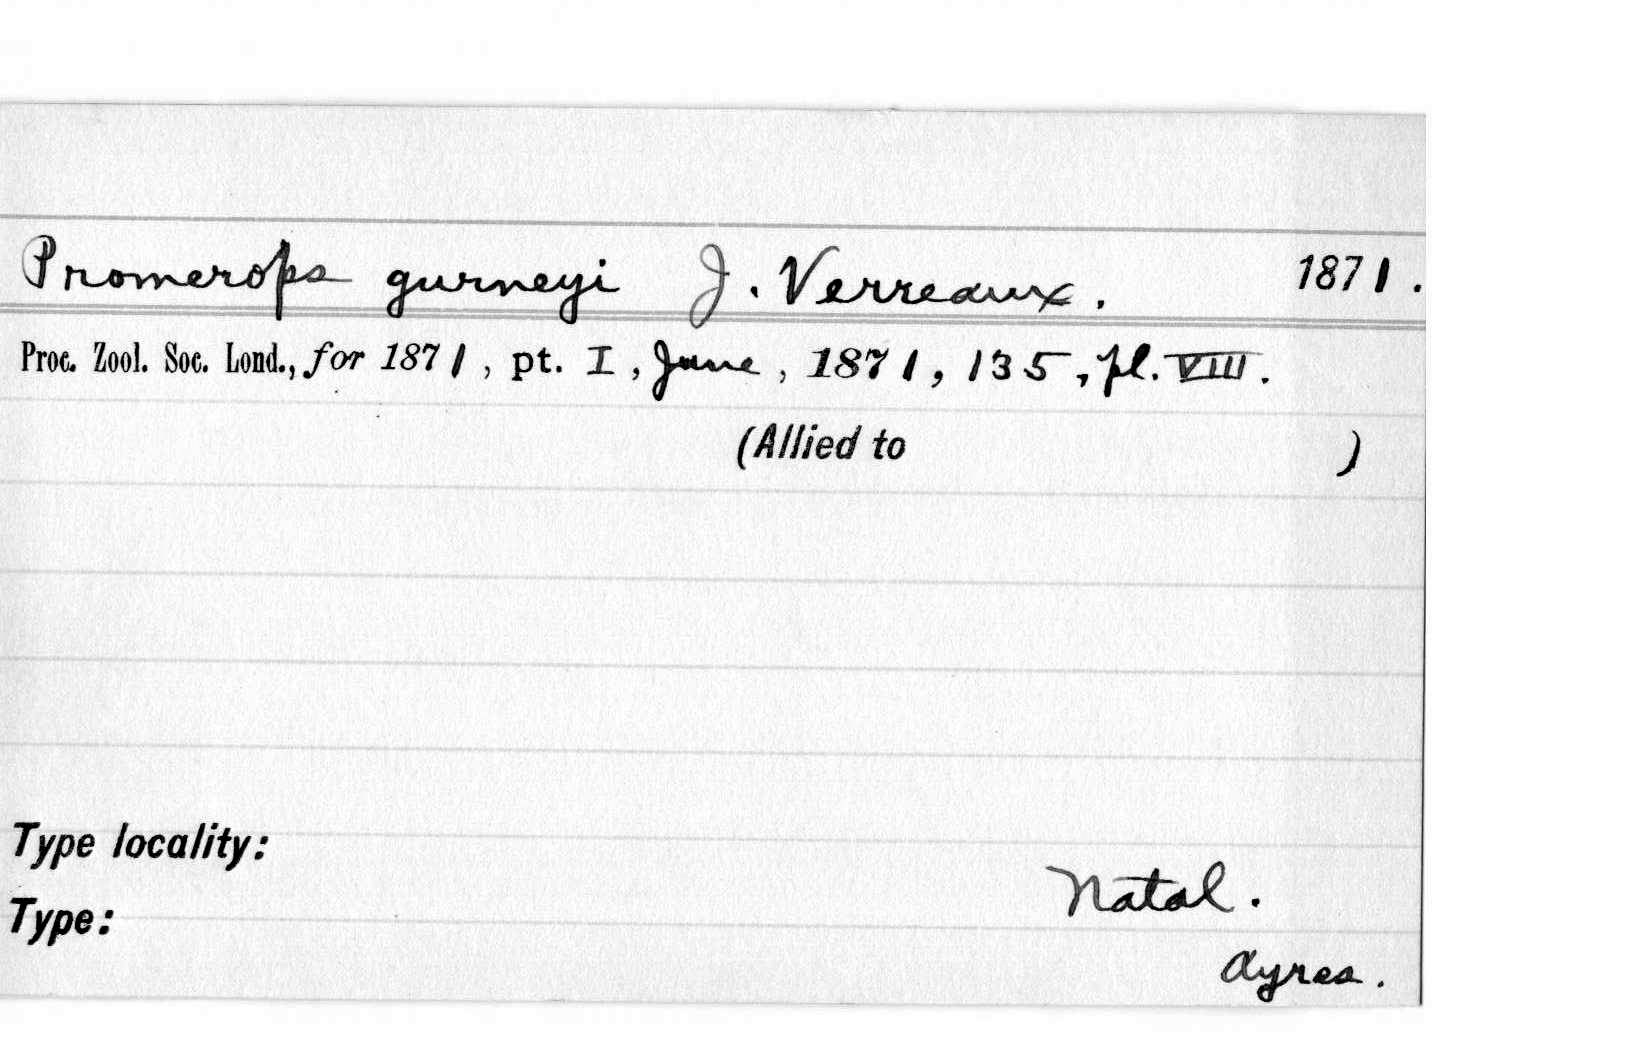 Promerops gurneyi J. Verreaux. 1871.
Proc. Zool. Soc. Lond., for 1871, pt. I, June, 1871, 135, pl. VIII.
(Allied to )
Type locality:
Natal.
Type:
Ayres.